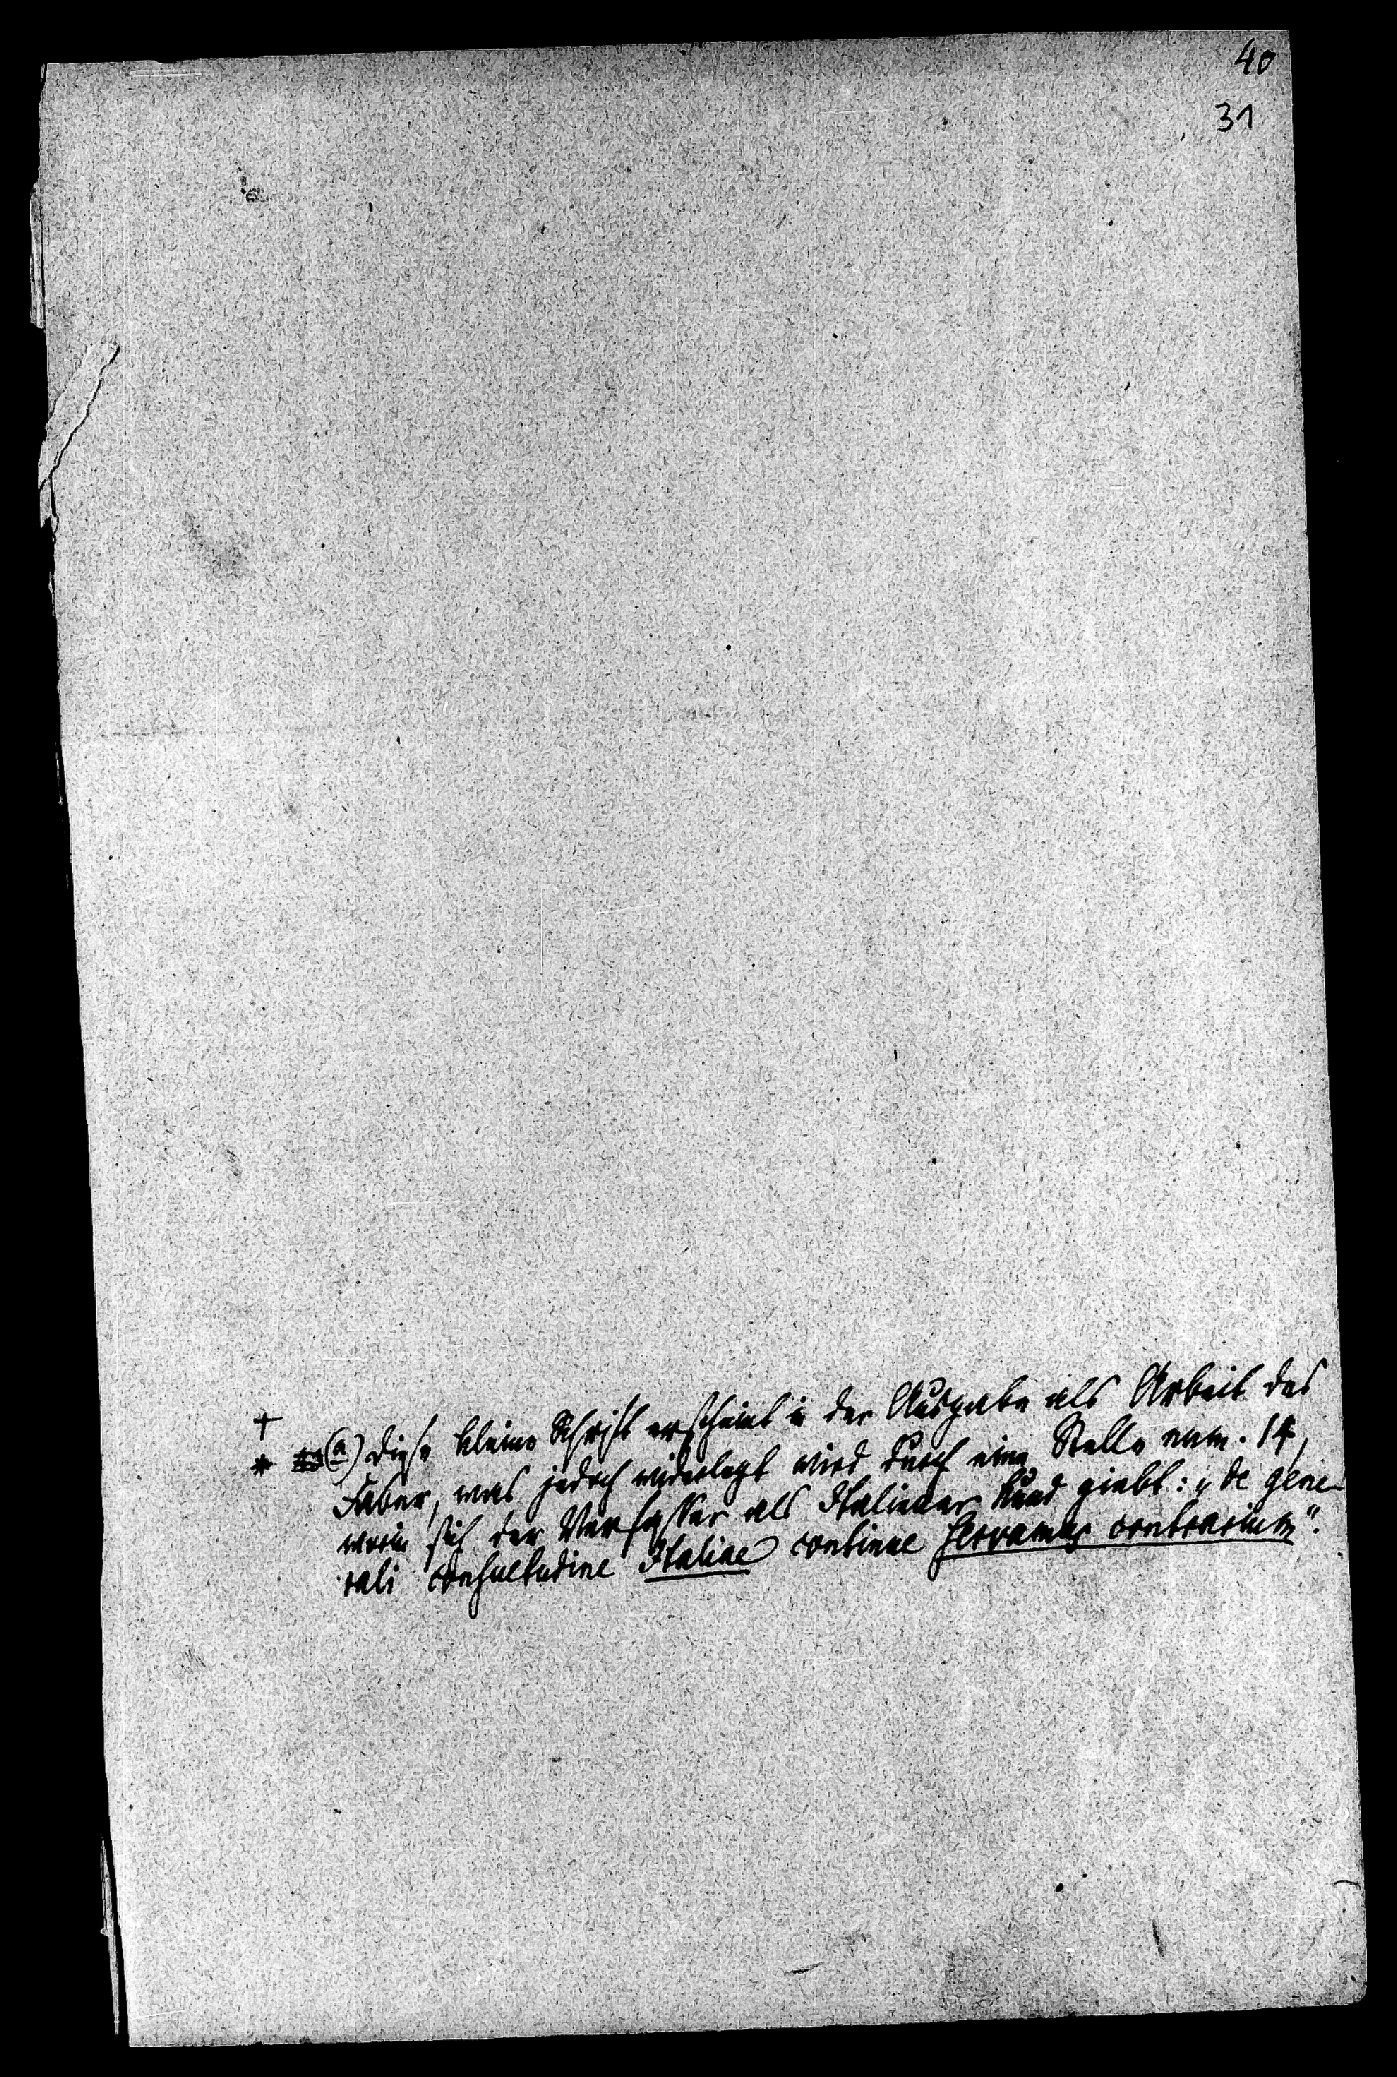 40
31
+
* a) Diese kleine Schrift erscheint in der Ausgabe als Arbeit des
Faber, was jedoch widerlegt wird durch eine Stelle num. 14,
worin sich der Verfasser als Italiener kund giebt: „de gene-
rali consuetudine Italiae continue servamus contrarium“.